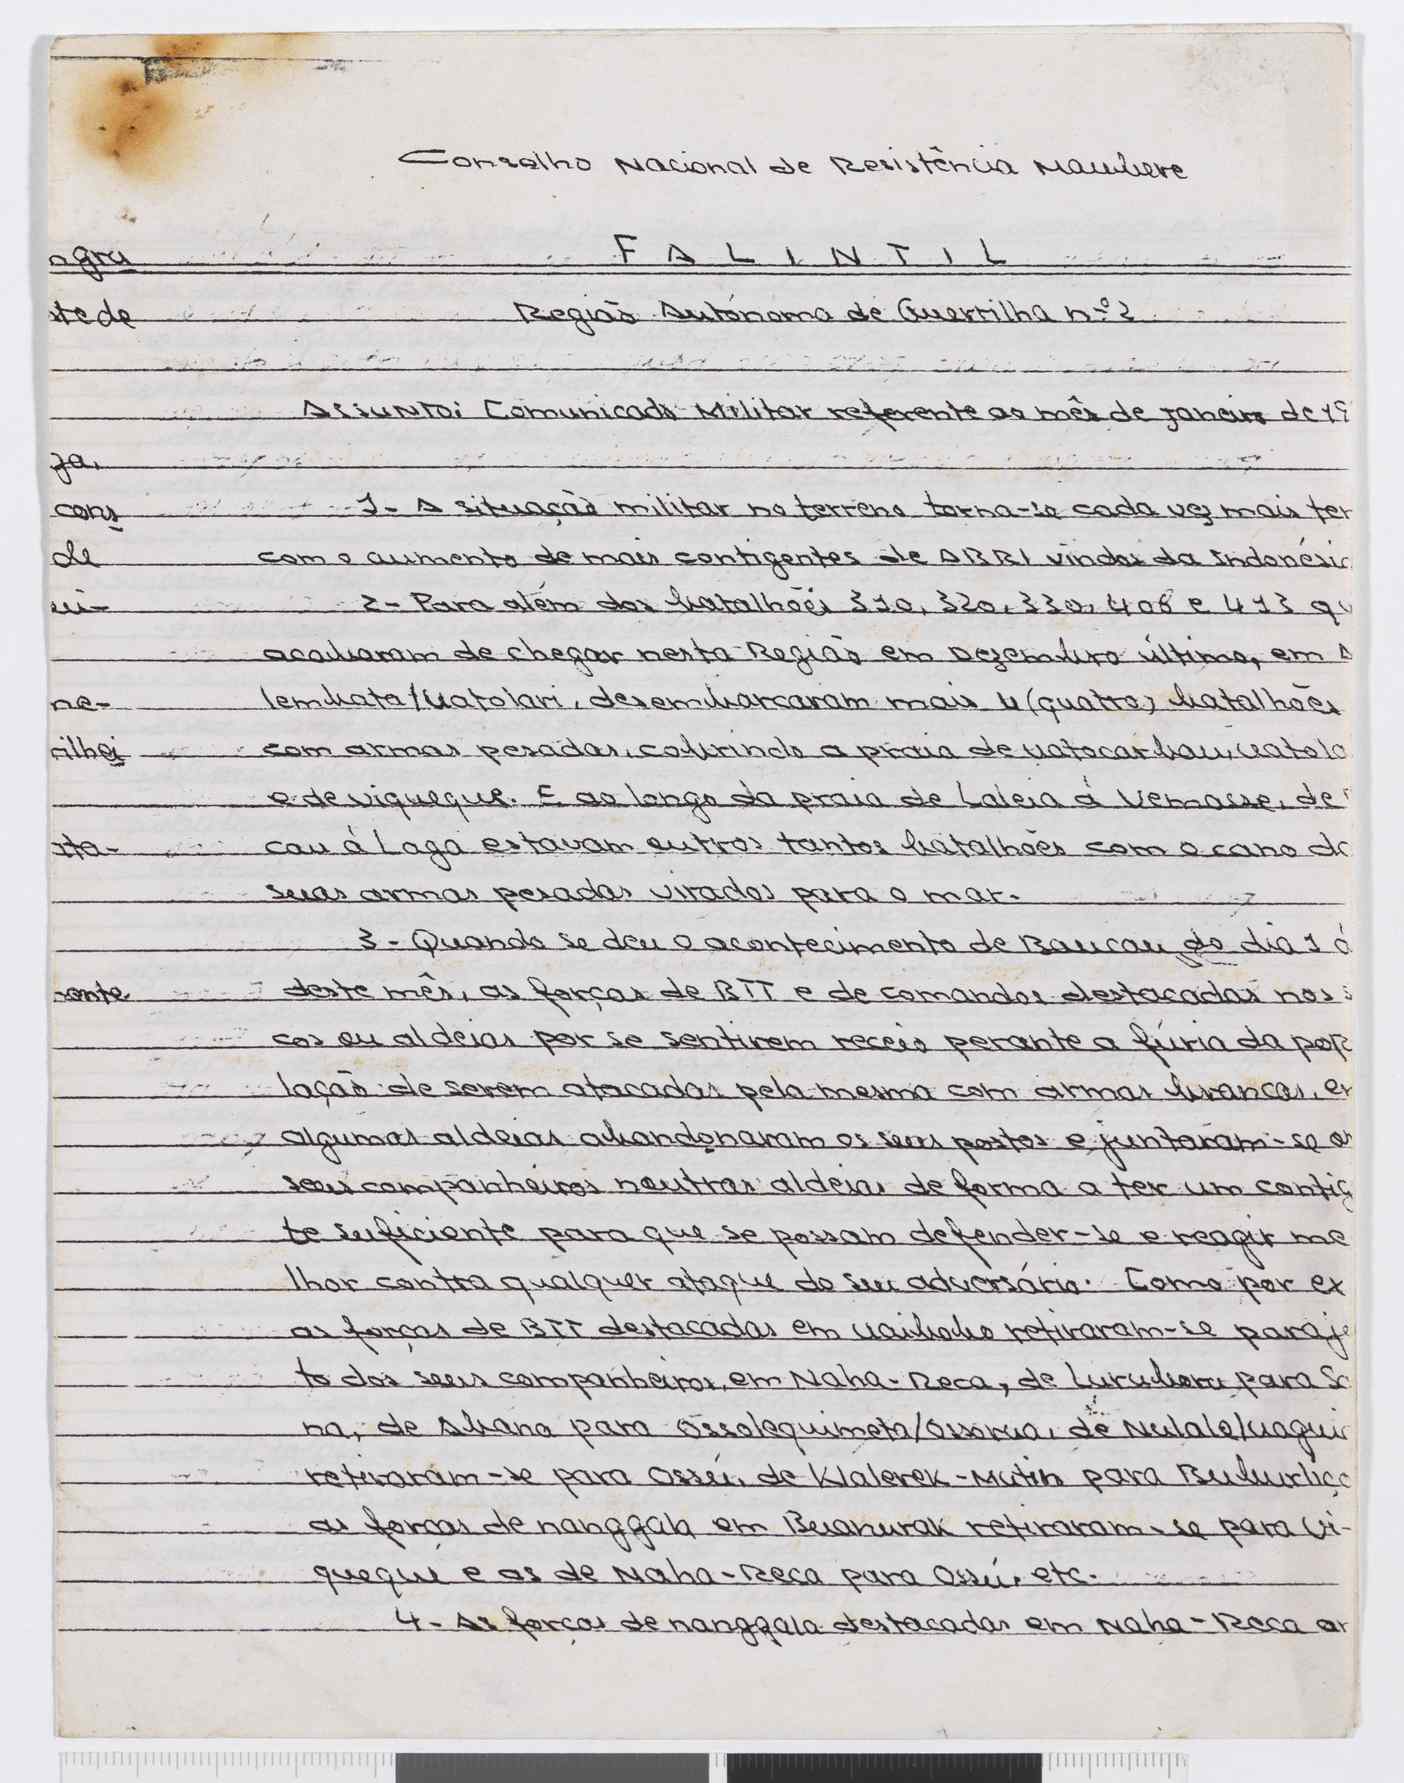 Conselho Nacional de Resistência Maubere
FALINTIL
Região Autónoma de Guerrilha nº 2
Assunto: Comunicado Militar referente ao mês de Janeiro de 19
1- A situação militar no terreno torna-se cada vez mais ten
com o aumento de mais contigentes de ABRI vindos da Indonésia
2- Para além dos batalhões 310, 320, 330, 406 e 413 qu
acabaram de chegar nesta Região em Dezembro último, em A
lembata/Uatolari, desembarcaram mais 4 (quatro) batalhões
com armas pesadas, cobrindo a praia de Uatocarbau, Uatola
e de Viqueque. E ao longo da praia de Laleia á Vemasse, de
cau á Laga estavam outros tantos batalhões com o cano da
suas armas pesadas virados para o mar.
3- Quando se deu o acontecimento de Baucau do dia 1 á
deste mês, as forças de BTT e de comandos destacadas nos s
cos ou aldeias por se sentirem receio perante a fúria da pop
lação de serem atacadas pela mesma com armas brancas, em
algumas aldeias abandonaram os seus postos e juntaram-se a
seus companheiros noutras aldeias de forma a ter um contig
te suficiente para que se possam defender-se e reagir me
lhor contra qualquer ataque do seu adversário. Como por ex
as forças de BTT destacadas em Uaibobo retiraram-se para ju
to dos seus companheiros, em Naha-Reca, de para
na, de Abana para Ossolequimeta/Ossorua, de Nulale/Uagui
retiraram-se para Ossú, de Klalerek-Mutin para
as forças de nanggala em Beanurak retiraram-se para Vi-
queque e as de Naha-Reca para Ossú, etc.
4- As forças de nanggala destacadas em Naha-Reca ar
gru
te de
ja,
cons
de
ui-
ne-
rilhei
sta-
mente